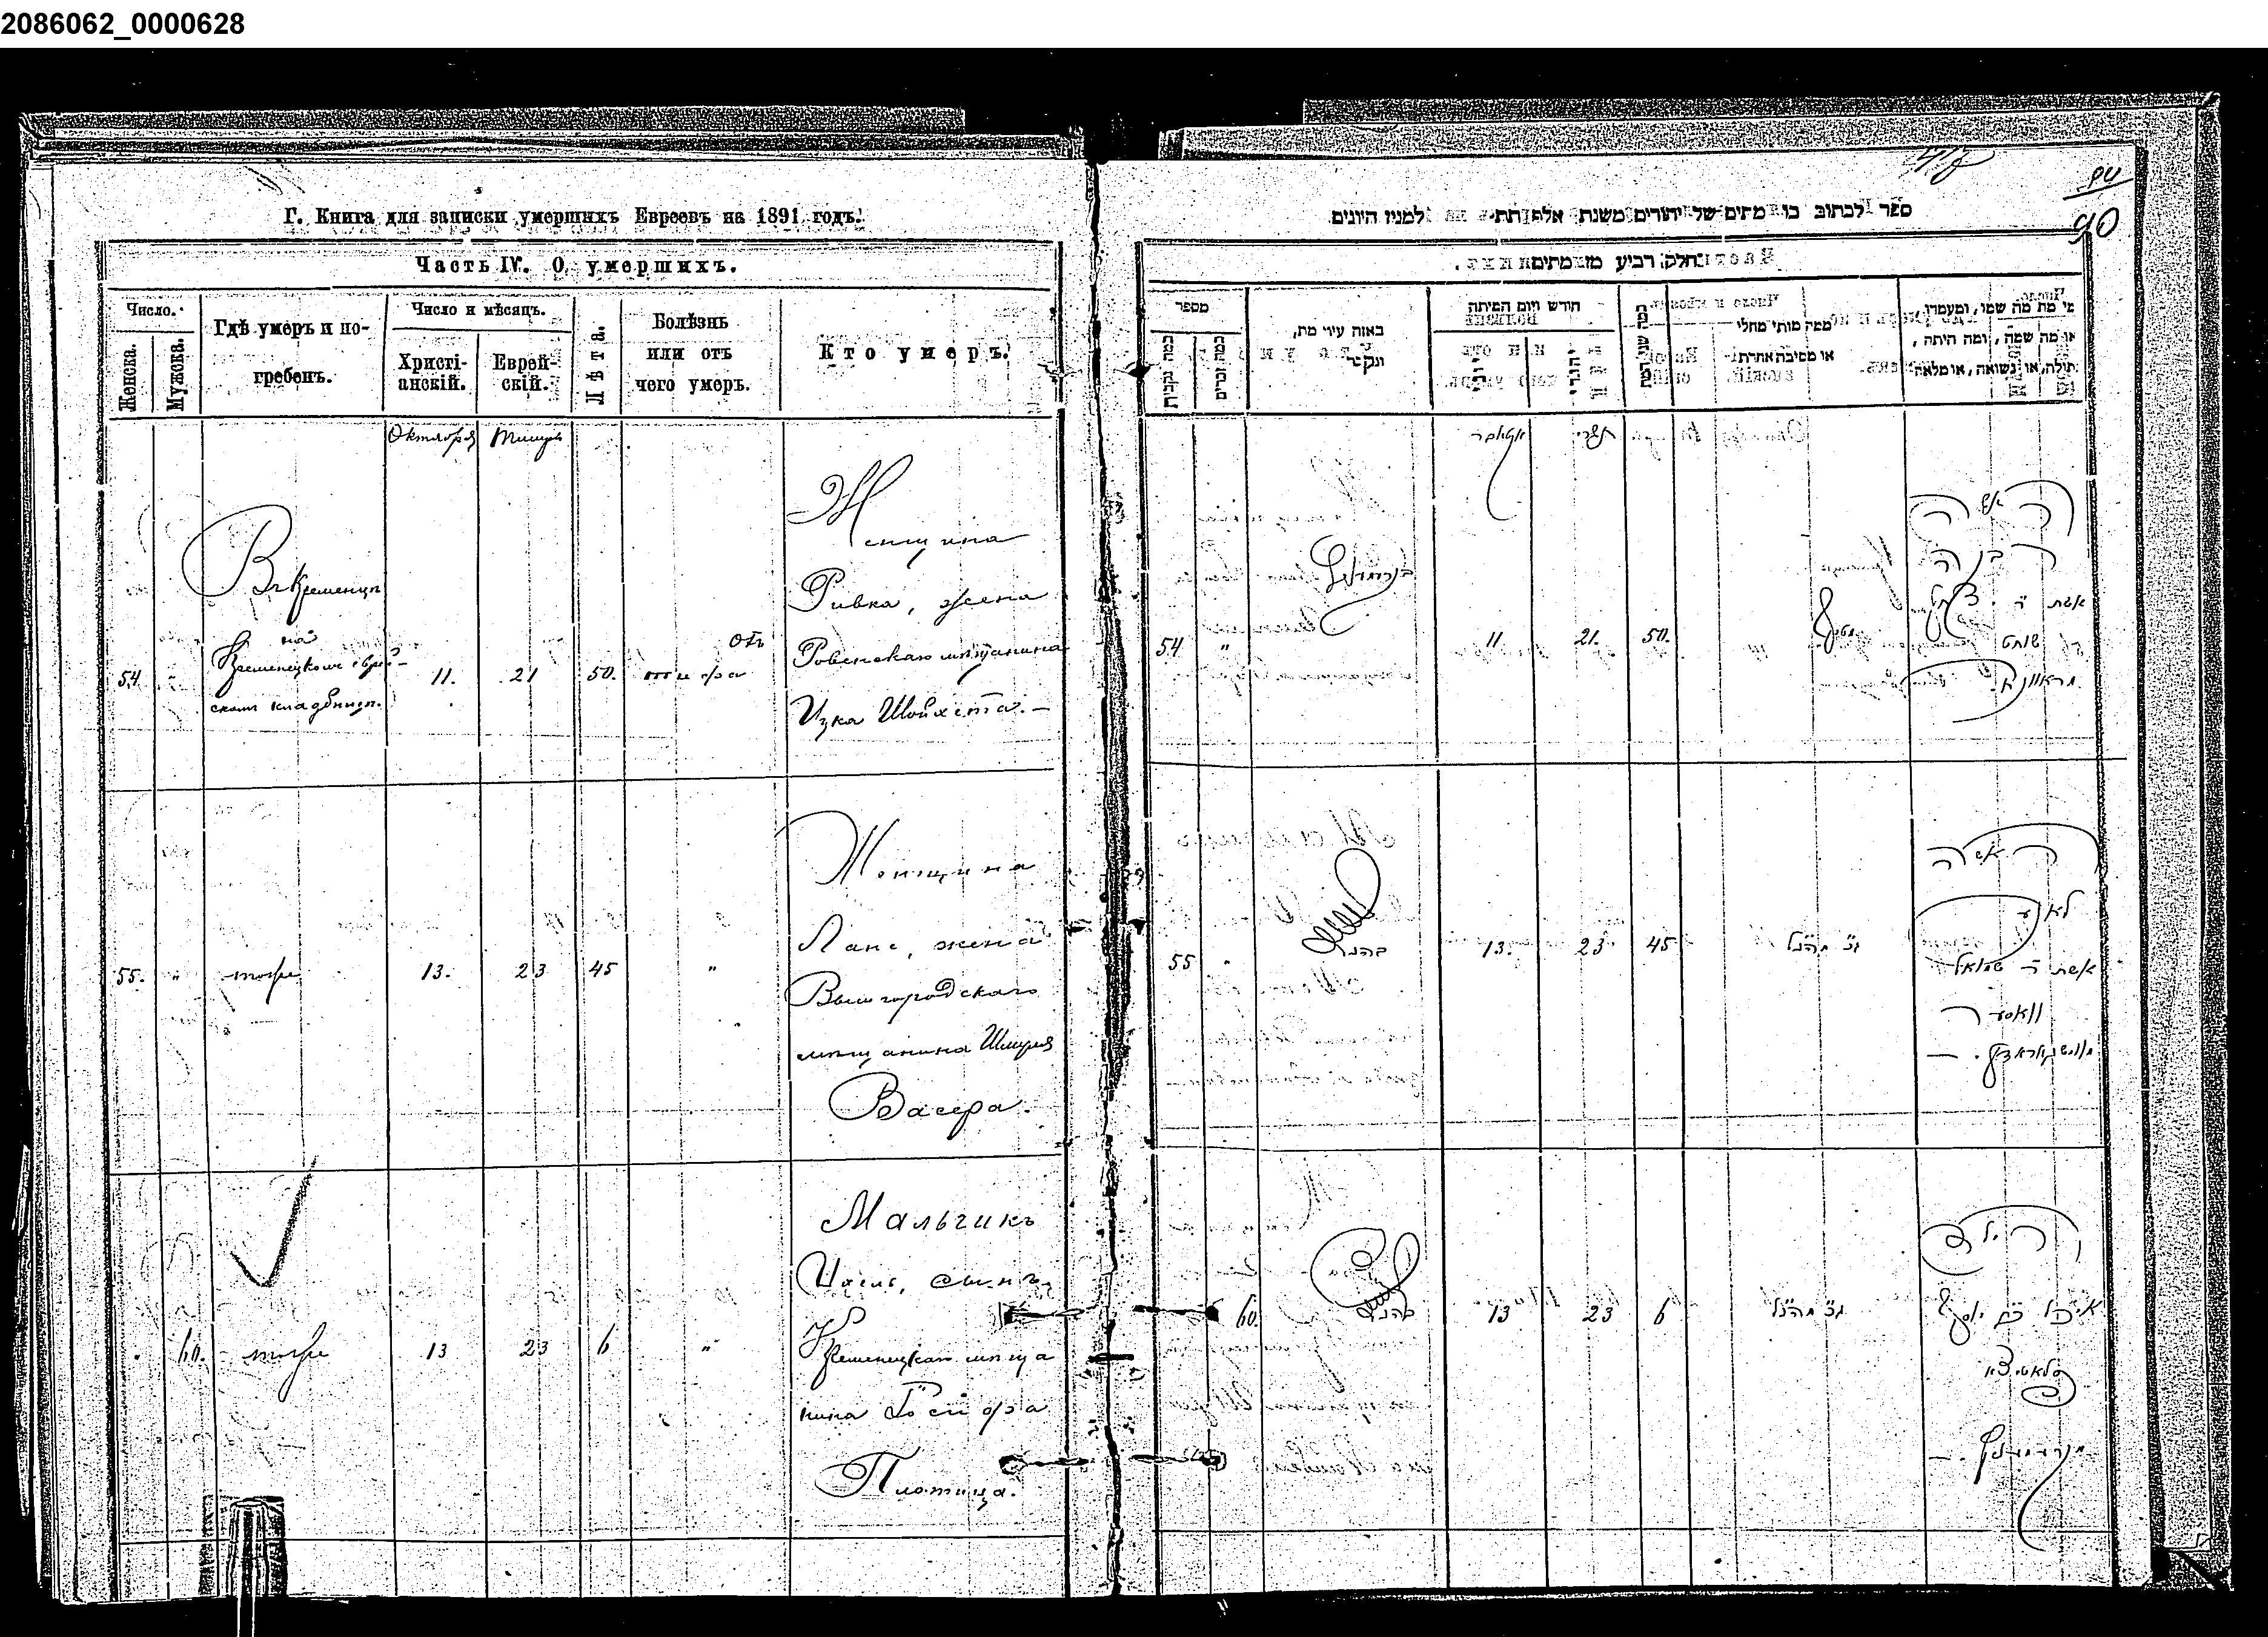 2086062_0000628
Г. Книга для записки умершихъ Евреевъ на 1891 годъ.
Часть IV. О умершихъ.
Число.
Женска.
Мужска.
Гдѣ умеръ и по-
гребенъ.
Число и мѣсяцъ.
Христі-
анскій.
Еврей-
скій.
Лѣта.
Болѣзнь
или отъ
чего умеръ.
Кто умеръ.
Октября Тишря
54 „
Въ Кременцѣ
на
Кременецкомъ еврей-
скомъ кладбищѣ.
11. 21 50.
отъ
тифа
Женщина
Ривка, жена
Ровенскаго мѣщанина
Ицка Шойхета. —
55. „ тоже 13. 23 45 „
Женщина
Лане, жена
Вышгородскаго
мѣщанина Шмуля
Васера.
60. тоже 13 23 6 „
Мальчикъ
сынъ
Кременецкаго мѣща
нина
Плотица.
90
ספר לכתוב בו מתים של יהודים משנת אלף תת למנין היונים
חלק רביע מן מתים
מספר
כמה נקבות
כמה זכרים
באזה עיר מת,
ונקבר
חודש ויום המיתה
כמה שני המת
ממה מותי מחלי
או מסיבה אחרת
מי מת מה שמו, ומעמדו,
או מה שמה, ומה היתה,
אקטאבר תשרי
54 „ 11 21. 50.
האשה
רבקה
אשת ר'
שוחט
מראוונא
55 „ כהנ"ל 13. 23 45 ג"כ כהנ"ל
האשה
לאנע
אשת ר' שמואל
וואסער
60. כהנ"ל 13 23 6 ג"כ כהנ"ל
הילד
יוסף
פלאטיצע